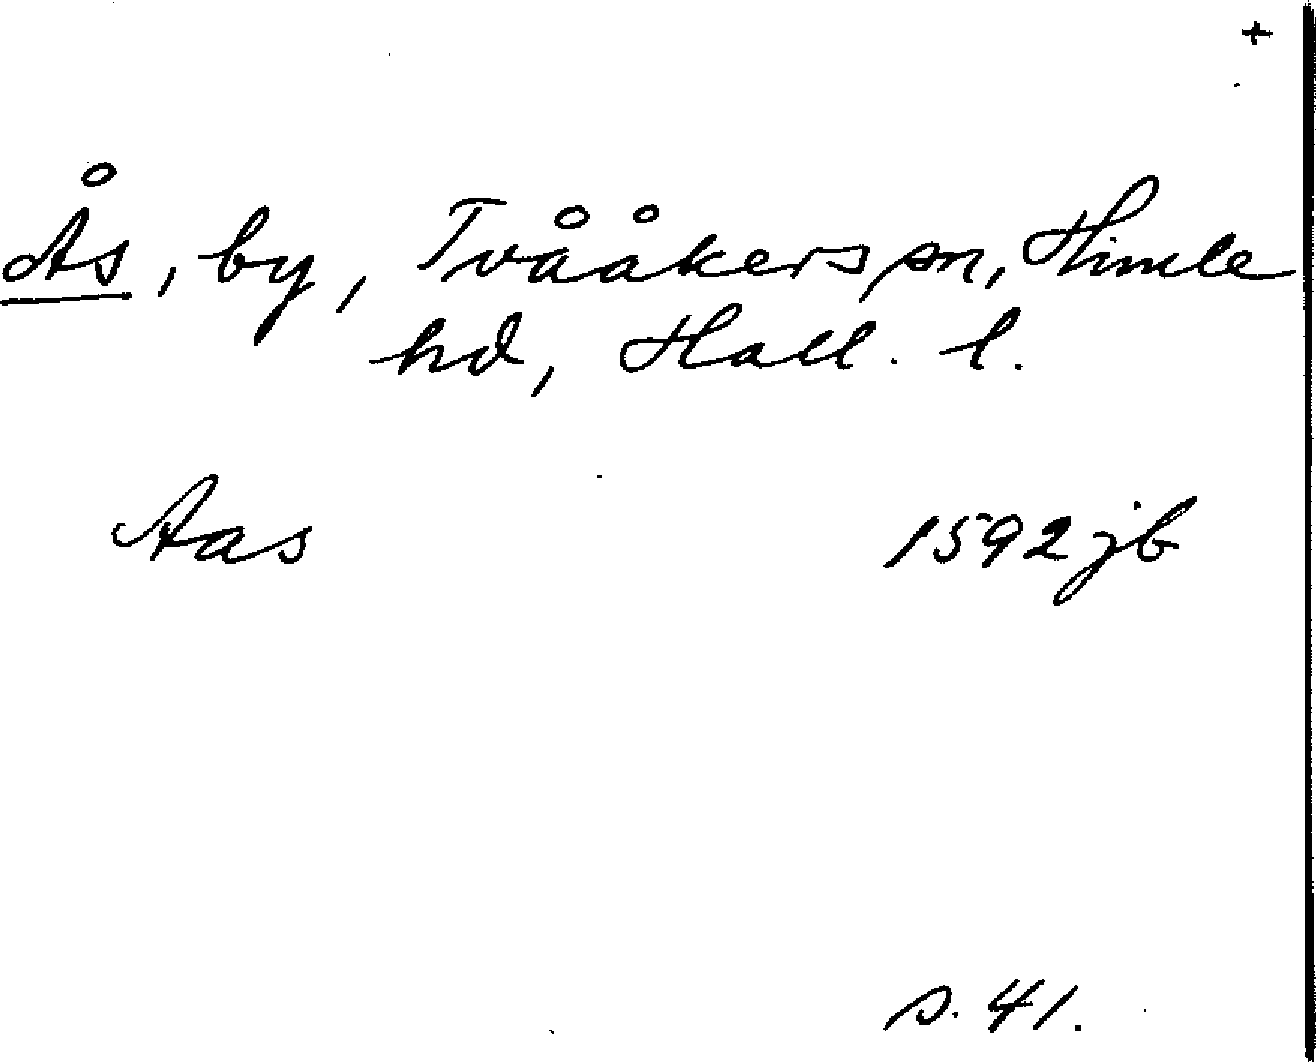 +
Ås, by, Tvååkers sn, Himle
hd, Hall. l.
Aas 1592 jb
s. 41.